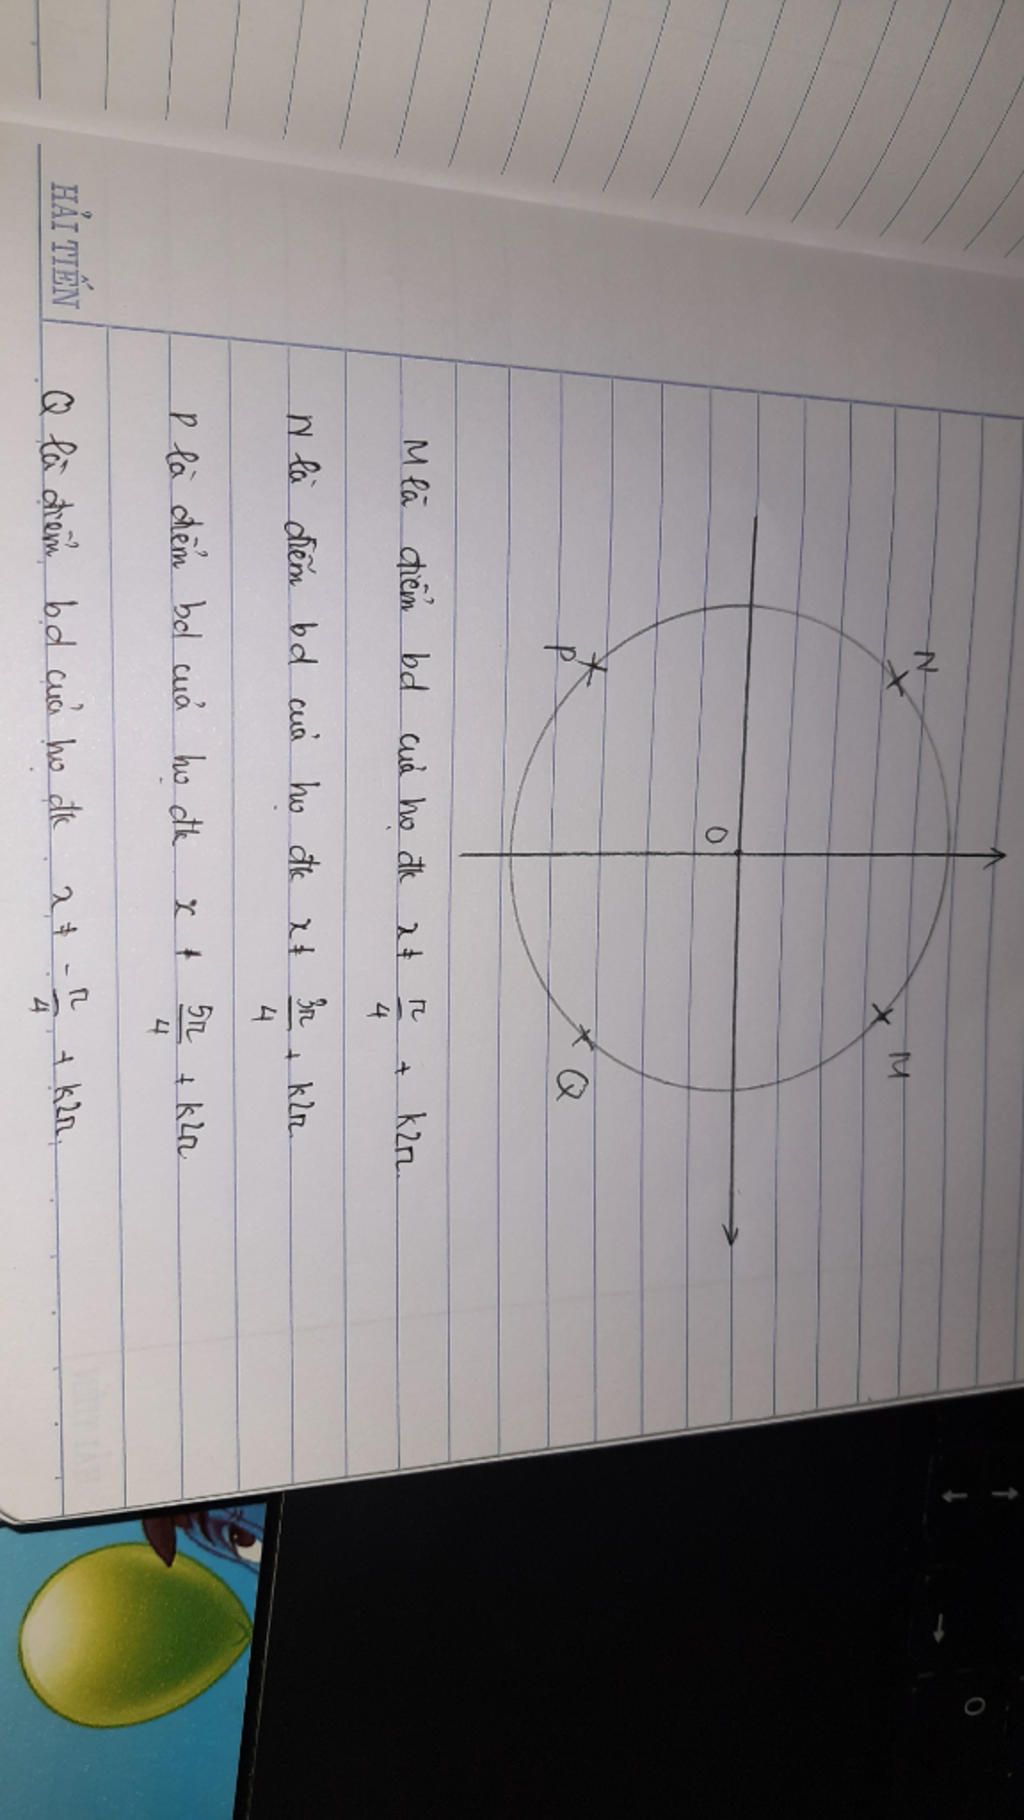 N
M
O
P
Q
M là điểm bd của họ đk x ≠ π/4 + k2π.
N là điểm bd của họ đk x ≠ 3π/4 + k2π.
P là điểm bd của họ đk x ≠ 5π/4 + k2π
Q là điểm bd của họ đk x ≠ -π/4 + k2π.
HẢI TIẾN